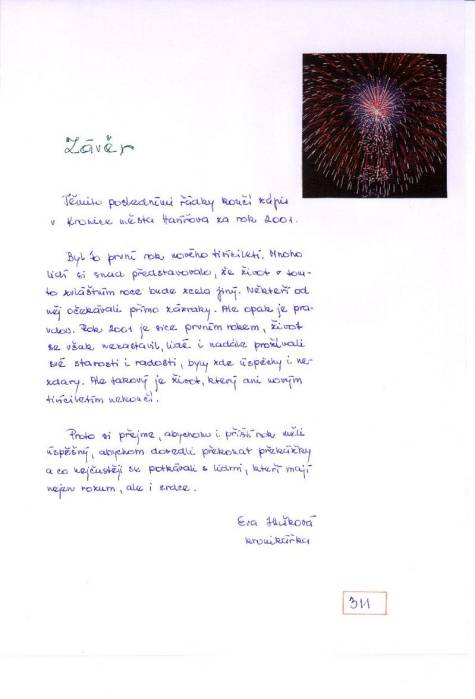 Závěr
Těmito posledními řádky končí zápis
v Kronice města Havířova za rok 2001.
Byl to první rok nového tisíciletí. Mnoho
lidí si snad představovalo, že život v tom-
to zvláštním roce bude zcela jiný. Někteří od
něj očekávali přímo zázraky. Ale opak je pra-
vdou. Rok 2001 je sice prvním rokem, život
se však nezastavil, lidé i nadále prožívali
své starosti i radosti, byly zde úspěchy i ne-
zdary. Ale takový je život, který ani novým
tisíciletím nekončí.
Proto si přejme, abychom i příští rok měli
úspěšný, abychom dovedli překonat překážky
a co nejčastěji se potkávali s lidmi, kteří mají
nejen rozum, ale i srdce.
Eva
kronikářka
311